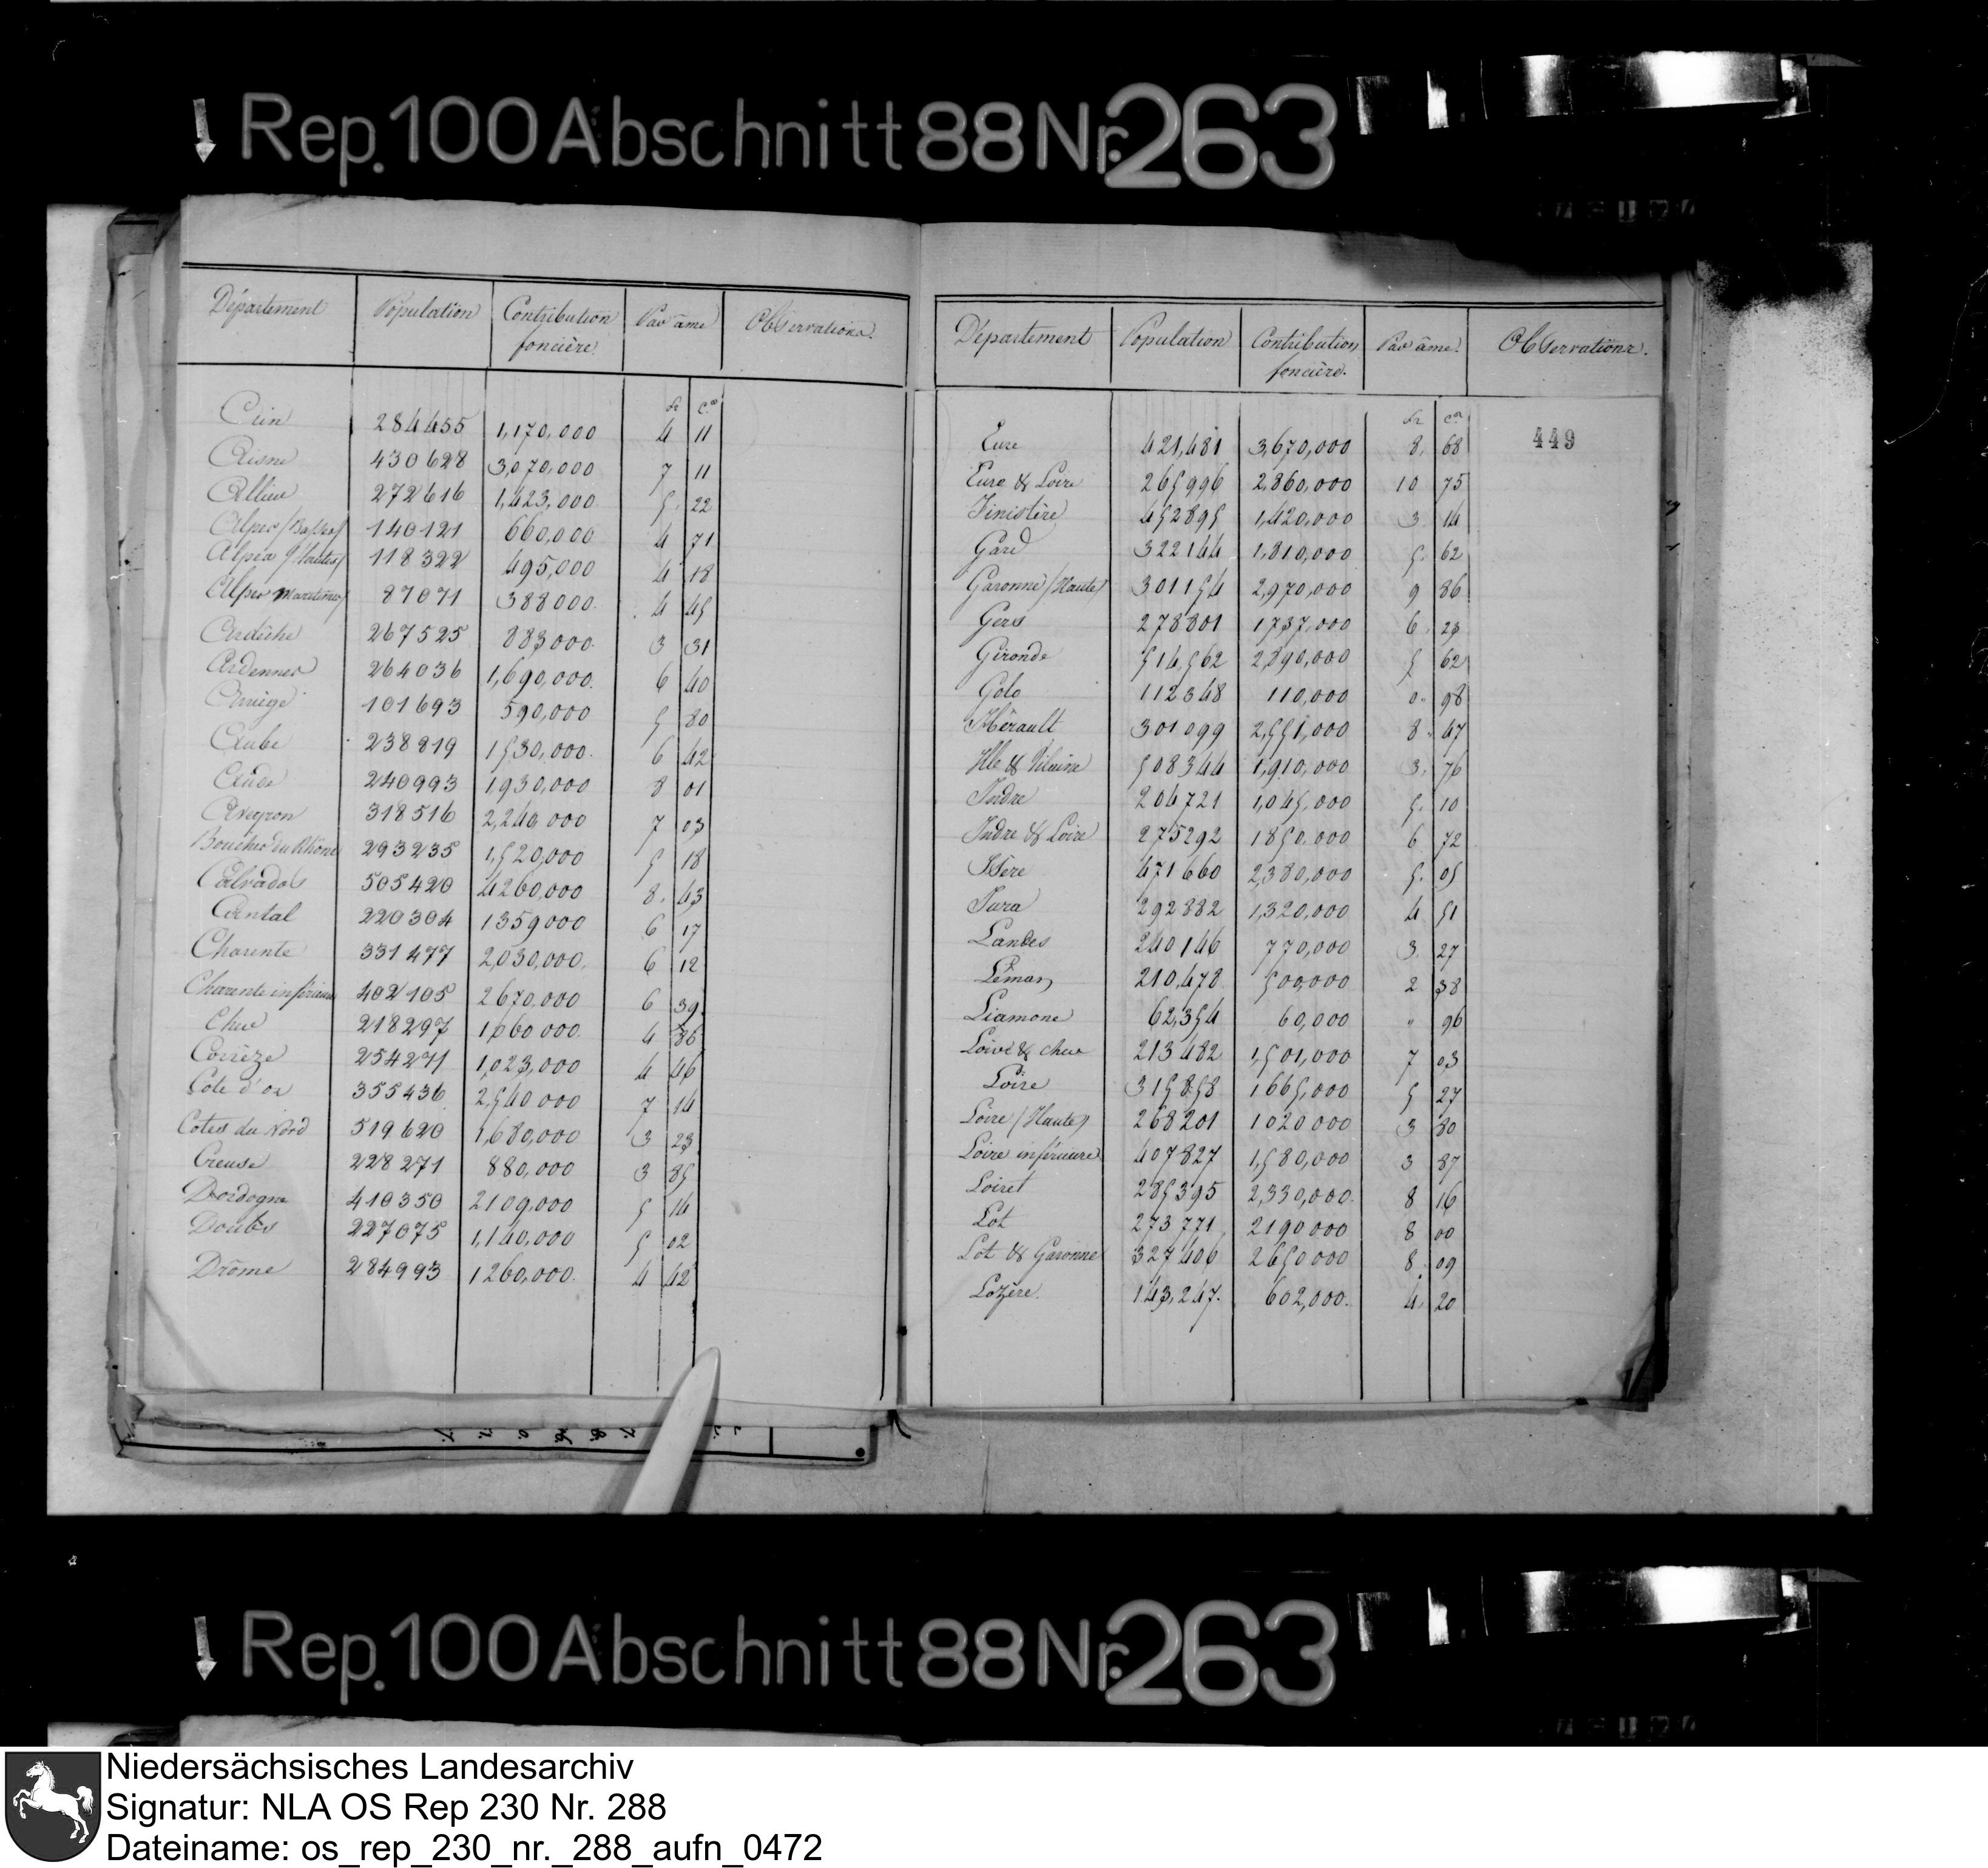 Rep. 100 Abschnitt 88 Nr. 263
Département Population Contribution foncière Par âme Observations.
fr c.es
Ain 284455 1,170,000 4 11
Aisne 430628 3,070,000 7 11
Allier 272616 1,423,000 5. 22
Alpes (Basses) 140121 660,000 4 71
Alpes (Hautes) 118322 495,000 4 18
Alpes maritimes 87071 388000. 4 45
Ardèche 267525 883000. 3 31
Ardennes 264036 1,690,000. 6 40
Arriège 101693 590,000 5 80
Aube 238819 1530,000. 6 42
Aude 240993 1,930,000 8 01
Aveyron 318516 2,240,000 7 03
Bouches du Rhône 293235 1,520,000 5 18
Calvados 505420 4260,000 8. 43
Cantal 220304 1359000 6 17
Charente 331477 2,030,000. 6 12
Charente inférieure 402105 2670,000 6 39.
Cher 218297 1,060,000. 4 86
Corrèze 254271 1,023,000 4 46
Cote d'or 355436 2,540,000 7 14
Cotes du Nord 519620 1,680,000 3 23
Creuse 228271 880,000 3 85
Dordogne 410350 2109,000 5 14
Doubs 227075 1,140,000 5 02
Drôme 284993 1260,000. 4 42
Département Population Contribution foncière. Par âme. Observations.
fr c.es
449
Eure 421,481 3,670,000 8. 68
Eure & Loire 265996 2,860,000 10 75
Finistère 452895 1,420,000 3 14
Gard 322144 1,810,000 5. 62
Garonne (Haute) 301154 2,970,000 9 86
Gers 278801 1737,000 6 23
Gironde 514,562 2,890,000 5 62
Golo 112348 110,000 0. 98
Hérault 301099 2,551,000 8. 47
Ille & Vilaine 508344 1,910,000 3. 76
Indre 204721 1,045,000 5. 10
Indre & Loire 275292 1850,000 6 72
Isère 471660 2,380,000 5. 05
Jura 292882 1,320,000 4 51
Landes 240146 770,000 3. 27
Léman 210,478 500,000 2 38
Liamone 62,354 60,000 " 96
Loire & cher 213482 1,501,000 7 03
Loire 315858 1665,000 5 27
Loire (Haute) 268201 1020000 3 80
Loire inférieure 407827 1,580,000 3 87
Loiret 285395 2,330,000. 8 16
Lot 273771 2190000 8 00
Lot & Garonne 327406 2650000 8. 09
Lozère. 143,247. 602,000. 4. 20
Rep. 100 Abschnitt 88 Nr. 263
Niedersächsisches Landesarchiv
Signatur: NLA OS Rep 230 Nr. 288
Dateiname: os_rep_230_nr._288_aufn_0472